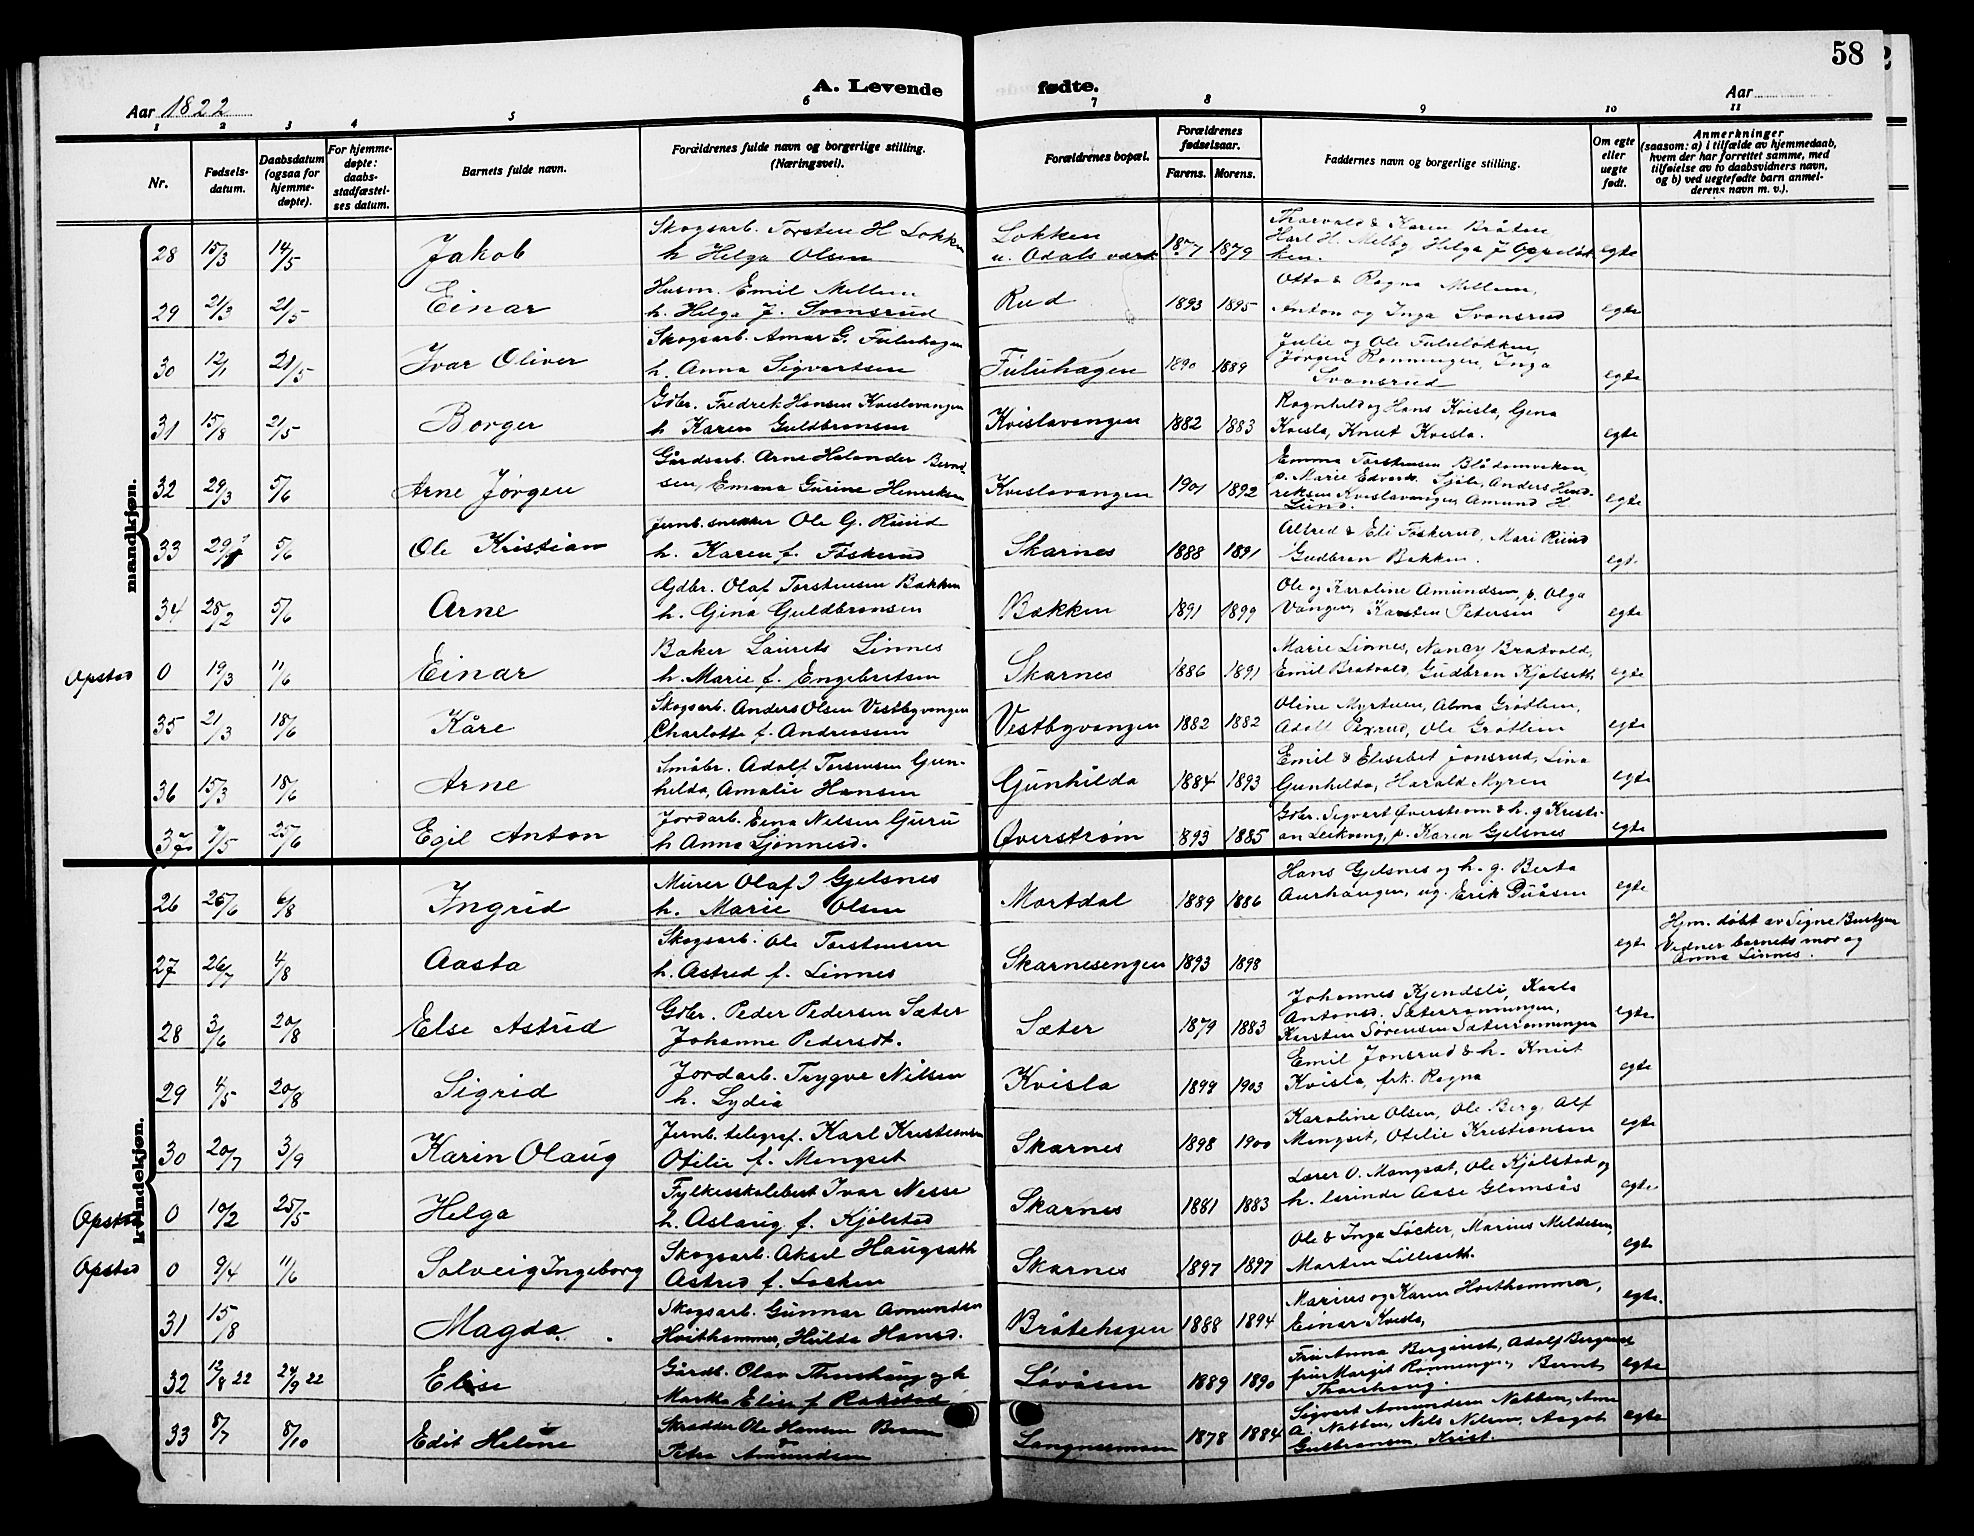 58
A. Levende fødte.
Aar 1822
Aar
1 2 3 4 5 6 7 8 9 10 11
Nr.
Fødsels-
datum.
Daabsdatum
(ogsaa for
hjemme-
døpte).
For hjemme-
døpte:
daabs-
stadfæstel-
ses datum.
Barnets fulde navn.
Forældrenes fulde navn og borgerlige stilling.
(Næringsvei).
Forældrenes bopæl.
Forældrenes
fødselsaar.
Farens. Morens.
Faddernes navn og borgerlige stilling.
Om egte
eller
uegte
født.
Anmerkninger
(saasom: a) i tilfælde av hjemmedaab,
hvem der har forrettet samme, med
tilføielse av to daabsvidners navn,
og b) ved uegtefødte barn anmel-
derens navn m. v.).
mandkjøn.
28 15/3 14/5 Jakob Skogsarb. Torsten H Løkken
h Helga Olsen Løkken
u. Odals værk 1877 1879 Thorvald & Karen Bråten
Karl H. Melby, Helga J Oppeløk
ken. egte
29 21/3 21/5 Einar Husm. Emil Mellem
h. Helga J. Svensrud Rud 1893 1895 Otto & Ragna Mellem,
Anton og Inga Svensrud egte
30 12/1 21/5 Ivar Oliver Skogsarb. Amar G. Fuluhagen
h. Anna Sigvartsen Fuluhagen 1890 1889 Julie og Ole Fululøkken,
Jørgen Rønningen, Inga
Svensrud egte
31 15/8 21/5 Borger Gdbr. Fredrik Hansen Kvislavangen
h Karen Guldbransen Kvislavangen 1882 1883 Ragnhild og Hans Kvisla, Gina
Kvisla, Knut Kvisla. egte
32 29/3 5/6 Arne Jørgen Gårdsarb. Arne Helander Bernd-
sen, Emma Gurine Henriksen Kvislavangen 1901 1892 Emma Torstensen
p. Marie Edvards. Anders Hend-
reksen Kvislavangen Amund H.
Lund. egte
33 5/6 Ole Kristian Jernb. snekker Ole G. Ruud
h. Karen f. Foskerud Skarnes 1888 1891 Alfred & Eli Foskerud, Mari Ruud
Gudbran Bakken. egte
34 28/2 5/6 Arne Gdbr. Olaf Torstensen Bakken
h. Gina Guldbransen Bakken 1891 1899 Ole og Karoline Amundsen, p. Olga
Vangen, Karsten Petersen egte
Opstad 0 19/3 11/6 Einar Baker Laurits Linnes
h. Marie f. Engebretsen Skarnes 1886 1891 Marie Linnes, Nancy Bratvold,
Emil Bratvold, Gudbran Kjølseth egte
35 21/3 18/6 Kåre Skogsarb. Anders Olsen Vestbyvangen
Charlotte f. Andreassen Vestbyvangen 1882 1882 Oline Myrtuen, Alma Grøtlien,
Adolf Ole Grøtlien egte
36 15/3 18/6 Arne Småbr. Adolf Torstensen Gun-
hilda, Amalie Hansen Gunhilda 1884 1893 Emil & Elisebet Jonsrud, Lina
Gunhilda, Harald Myren egte
37 7/5 25/6 Egil Anton Jordarb. Nilsen Guru
h Anna Sjønnesd. Øverstrøm 1893 1885 Gdbr. Sigvart Øverstrøm & h. g Kristi-
an Leikvang, p. Karen Gjelsnes egte
kvindekjøn.
26 25/6 6/8 Ingrid Murer Olaf J Gjelsnes
h. Marie Olsen Mortdal 1889 1886 Hans Gjelsnes og h. g. Berta
Aurhaugen, ug. Erik egte
27 26/7 4/8 Aasta Skogsarb. Ole Torstensen
h. Astrid f. Linnes Skarnesengen 1893 1898 egte Hjm. døbt av Signe
barnets mor og
Anna Linnes.
28 3/6 20/8 Else Astrid Gdbr. Peder Pedersen Sæter
Johanne Pedersdt. Sæter 1879 1883 Johannes Kjendsli, Karla
Antonsd. Sæterrønningen,
Karsten Sørensen Sæterrønningen egte
29 4/5 20/8 Sigrid Jordarb. Trygve Nilsen
h. Lydia Kvisla 1899 1903 Emil Jonsrud & h. Knut
Kvisla, frk. Ragna egte
30 20/7 3/9 Karin Olaug Jernb. telegraf. Karl Kristiansen
Otilie f. Mengset Skarnes 1898 1900 Karoline Olsen, Ole Berg, Alf
Mengset, Otilie Kristiansen egte
Opstad 0 10/2 25/5 Helga Fylkesskolebest Ivar Nesse
h. Aslaug f. Kjølstad Skarnes 1881 1883 Lærer O. Mangset, Ole Kjølstad og
h. lærinde Aase Glomsås egte
Opstad 0 9/4 11/6 Solveig Ingeborg Skogsarb. Aksel Haugsæth
Astrid f. Løcken Skarnes 1897 1897 Ole & Inga Løcker, Marius Meldesen,
Morten Lilleseth. egte
31 15/8 Magda. Skogsarb. Gunnar Amundsen
Hvithammer, Hulda Hansd. Bråtehagen 1888 1894 Marius og Karen Hvithammer,
Einar Kvisla, egte.
32 12/8 22 24/9 22 Elise Gårdb. Olav Thorshaug og h
Martha Elise f Rakstad Løvåsen 1889 1890 Fru Anna Bergquist, Adolf Bergquist
fru Margit Rønningen, Bernt
Thorshaug. egte
33 8/7 8/10 Edit Helene Skrædder Ole Hansen
Petra Amundsen 1878 1884 Sigvart Amundsen Nabben, Arne
A. Nabben, Nils Nilsen, Aagot
Gulbransen, Krist. egte